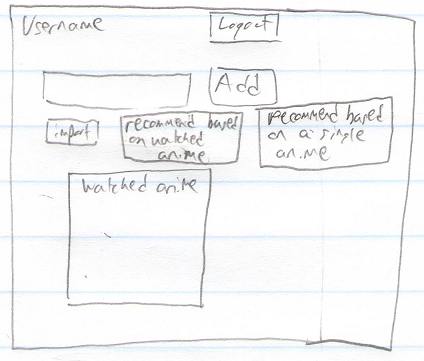 Username
Logout
Add
import
recommend based
on watched
anime
recommend based
on a single
anime
watched anime